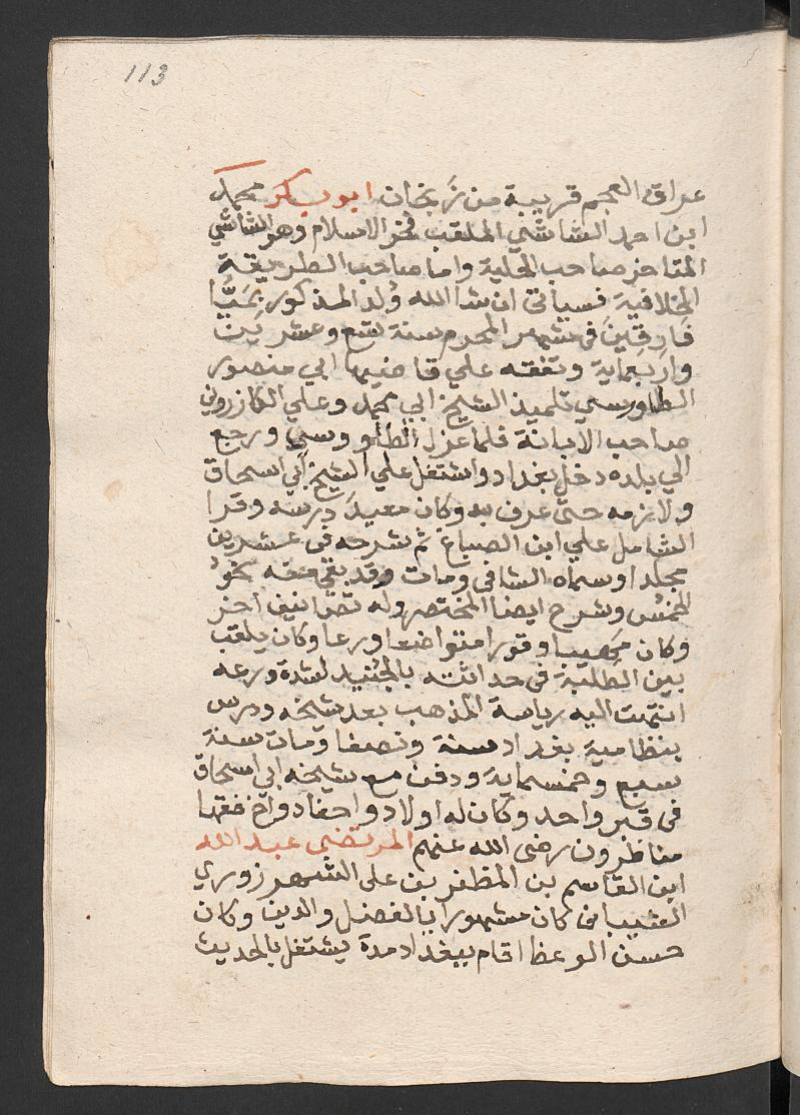 113
عراق العجم قريبة من زنجان ابو بكر محمد
ابن احمد الشاشي الملقب فخر الاسلام وهو الشاشي
المتاخر صاحب الحلية واما صاحب الطريقة
الخلافية فسياتى ان شا الله وُلد المذكور بمَيَّا
فَارِقِينَ فى شهر المحرم سنة تسع وعشرين
واربعماية وتفقه علي قاضيها ابي منصور
الطاوسي تلميذ الشيخ ابي محمد وعلي الكازروني
صاحب الابانة فلما عزل الطاووسي ورجع
الي بلده دخل بغداد واشتغل علي الشيخ ابي اسحاق
ولازمه حتى عرف به وكان معيدَ درسه وقرا
الشامل علي ابن الصباغ ثم شرحه فى عشرين
مجلدا وسماه الشافى ومات وقد بقي منه نحوُ
الخمُس وشرح ايضا المختصر وله تصانيف اخر
وكان مَهيبا وقورا متواضعا ورعا وكان يلقب
بين الطلبة فى حداثته بالجُنيد لشدة ورعه
انتهت اليه رياسة المذهب بعد شيخه ودرس
بنظامية بغداد سنة ونصفا ومات سنة
سبع وخمسماية ودفن مع شيخه ابي اسحاق
فى قبر واحد وكان له اولاد واحفاد واخ فقها
مناظرون رضى الله عنهم المرتضى عبد الله
ابن القاسم بن المظفر بن على الشهرزوري
الشيبانى كان مشهورا بالفضل والدين وكان
حسن الوعظ اقام ببغداد مدة يشتغل بالحديث